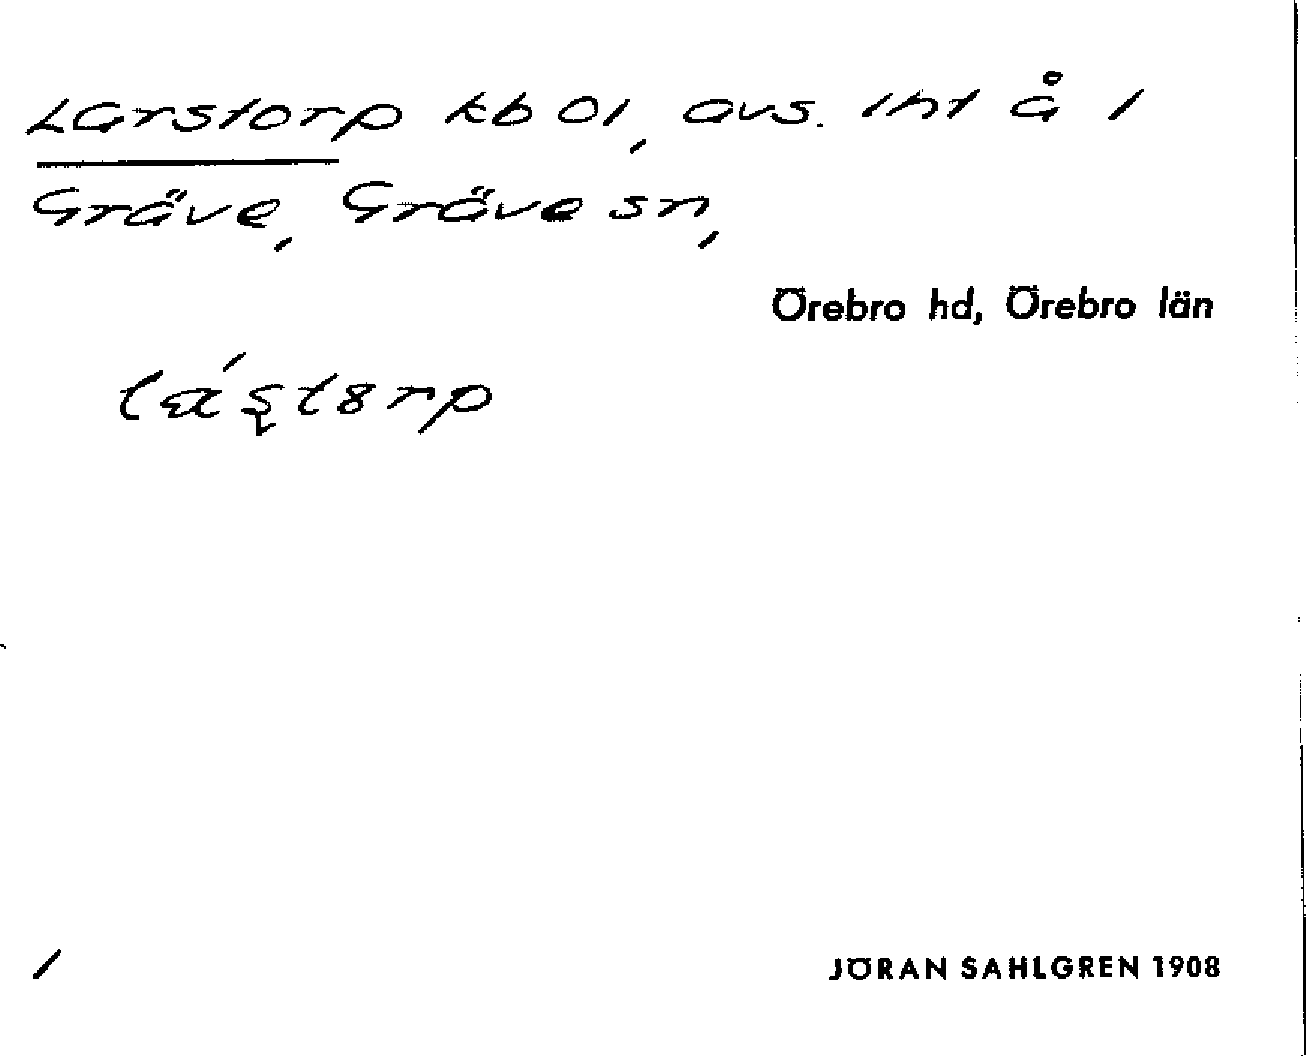 Larstorp kb 01, avs. lht å 1
Gräve, Gräve sn,
Örebro hd, Örebro län
1
JÖRAN SAHLGREN 1908